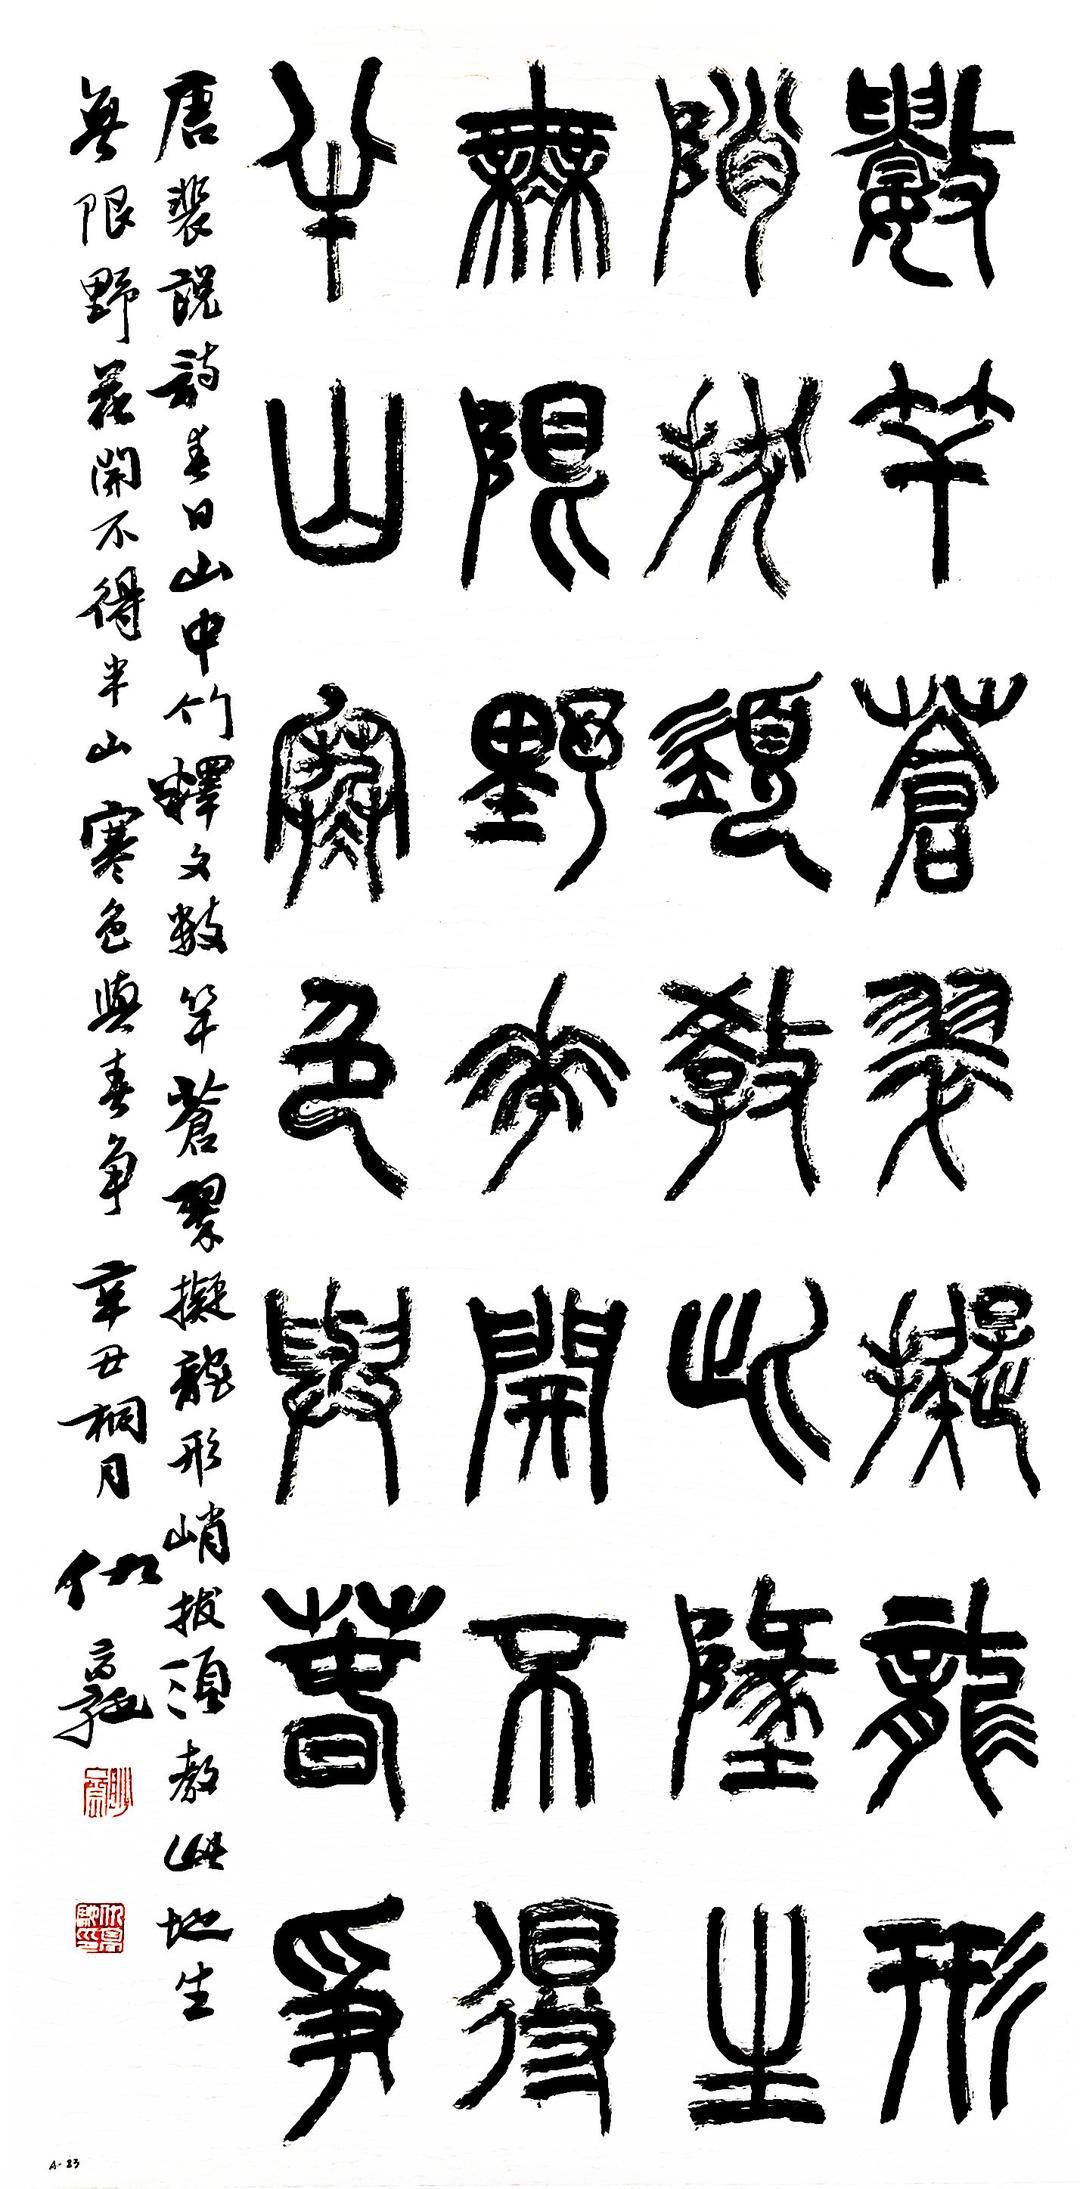 數竿蒼翠擬龍形
陗拔須教此墬生
無限野華開不得
半山寒色與春爭
唐裴說詩春日山中竹釋文數竿蒼翠擬龍形峭拔須教此地生
無限野花開不得半山寒色與春爭辛丑桐月
A-83